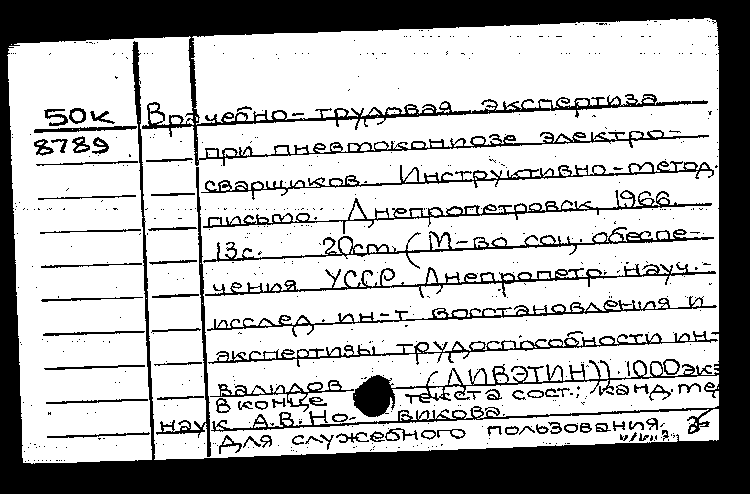 50к Врачебно-трудовая экспертиза
8789 при пневмокониозе электро-
сварщиков. Инструктивно-метод.
письмо. Днепропетровск, 1966.
13с. 20см. (М-во соц. обеспе-
чения УССР. Днепропетр. науч.-
исслед. ин-т восстановления и
экспертизы трудоспособности ин-
валидов (ДИВЭТИН)). 1000 экз
В конце текста сост.: канд. мед
наук А.В. Но- викова.
Для служебного пользования.